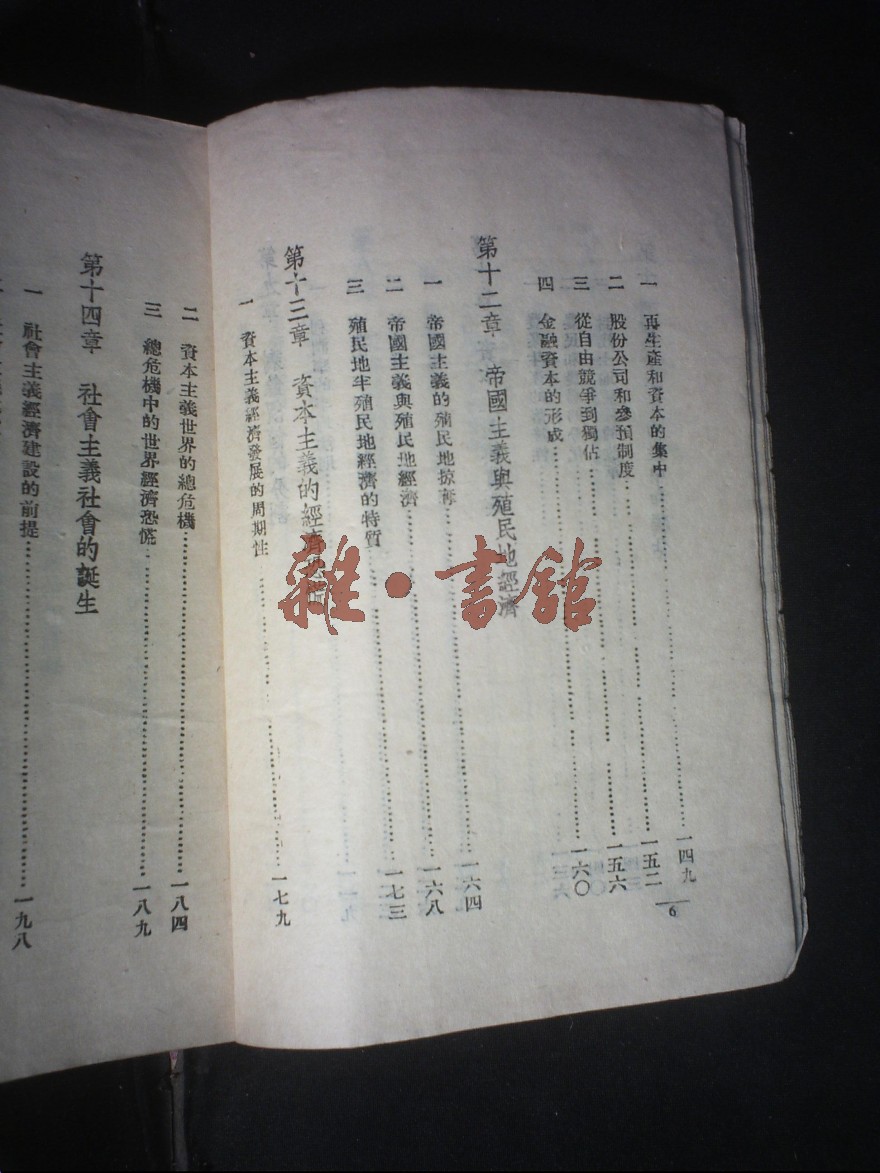 一　再生產和資本的集中……一四九
二　股份公司和參預制度……一五二
三　從自由競爭到獨佔……一五六
四　金融資本的形成……一六〇
第十二章　帝國主義與殖民地經濟
一　帝國主義的殖民地掠奪……一六四
二　帝國主義與殖民地經濟……一六八
三　殖民地半殖民地經濟的特質……一七三
第十三章　資本主義的經濟
一　資本主義經濟發展的周期性……一七九
6
二　資本主義世界的總危機……一八四
三　總危機中的世界經濟恐慌……一八九
第十四章　社會主義社會的誕生
一　社會主義經濟建設的前提……一九八
雜·書館